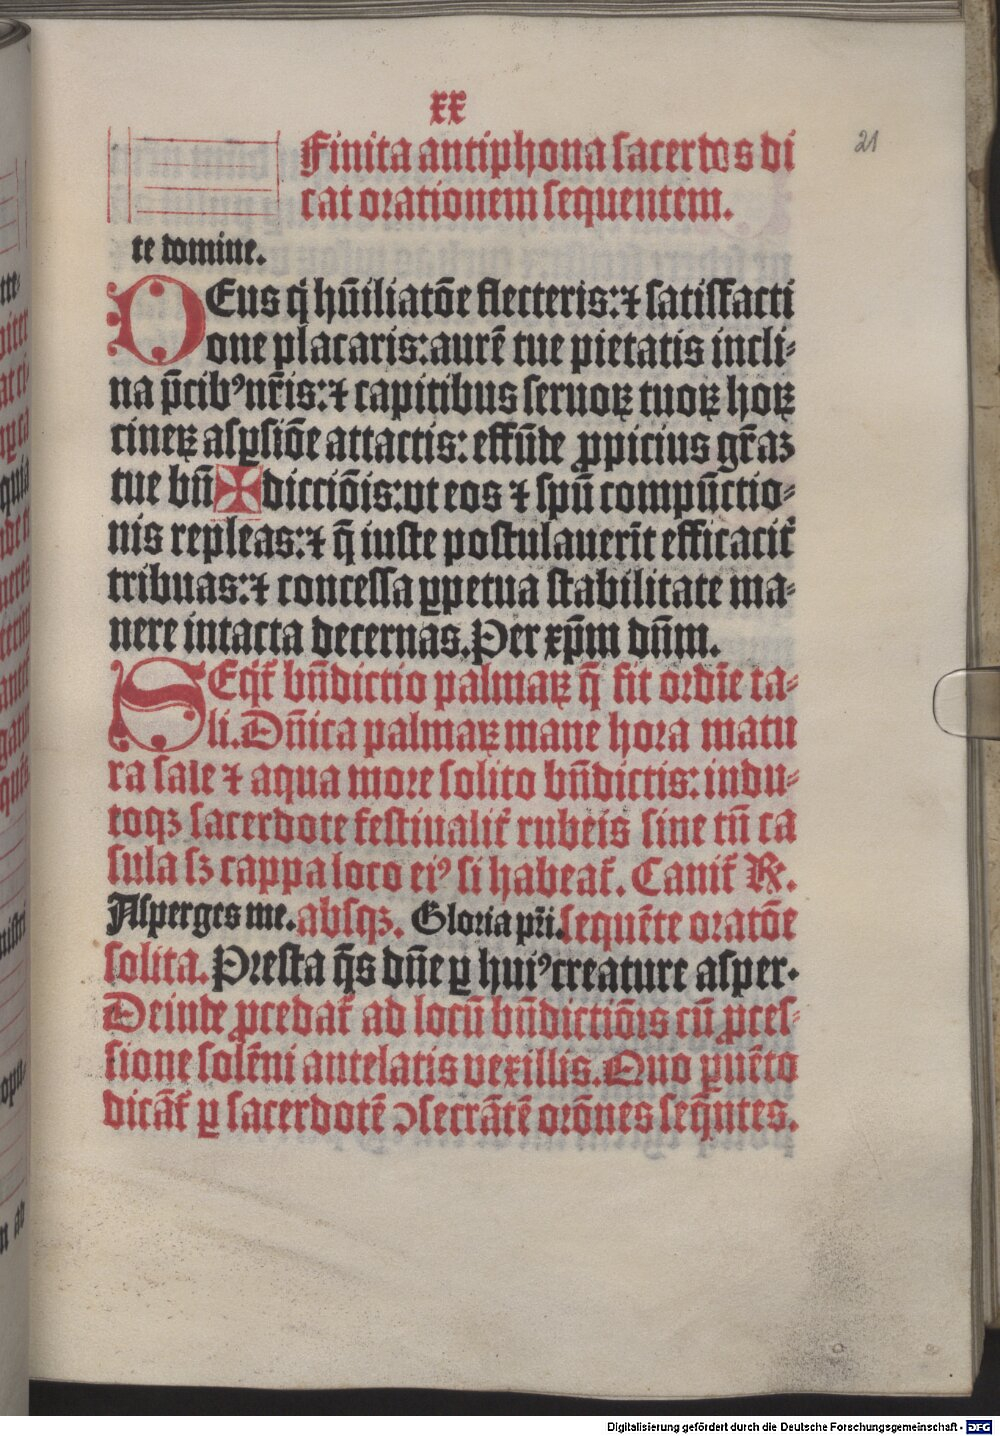 xx
21
Finita antiphona sacerdos di
cat orationem sequentem.
te domine.
DEus q̇ hūiliatōe flecteris: ⁊ satisfacti
one placaris: aurē tue pietatis incli⸗
na p̄cibꝰ nr̄is: ⁊ capitibus seruoꝝ tuoꝝ hoꝝ
cineꝝ asꝑsiōe attactis: effūde ꝓpicius gr̄aꝫ
tue bn̄ ✠ dicciōis: vt eos ⁊ spū compūctio⸗
nis repleas: ⁊ q̄ iuste postulauerīt efficacit̉
tribuas: ⁊ concessa ꝑpetua stabilitate ma⸗
nere intacta decernas. Per xp̄m dn̄m.
SEqt̉ bn̄dictio palmaꝝ q̄ fit ordīe ta⸗
li. Dn̄ica palmaꝝ mane hora matu
ra sale ⁊ aqua more solito bn̄dictis: indu⸗
toqꝫ sacerdote festiualit̉ rubeis sine tn̄ ca
sula sꝫ cappa loco eiꝰ si habeat̉. Canit̉ ℟.
Asperges me. absqꝫ. Gloria pr̄i. sequēte oratōe
solita. Presta q̄s dn̄e ꝑ huiꝰ creature asper.
Deinde ꝓcedat̉ ad locū bn̄dictiōis cū ꝓces⸗
sione solēni antelatis vexillis. Quo ꝑuēto
dicāt̉ ꝑ sacerdotē ↄsecrātē orōnes seq̄ntes.
Digitalisierung gefördert durch die Deutsche Forschungsgemeinschaft - DFG